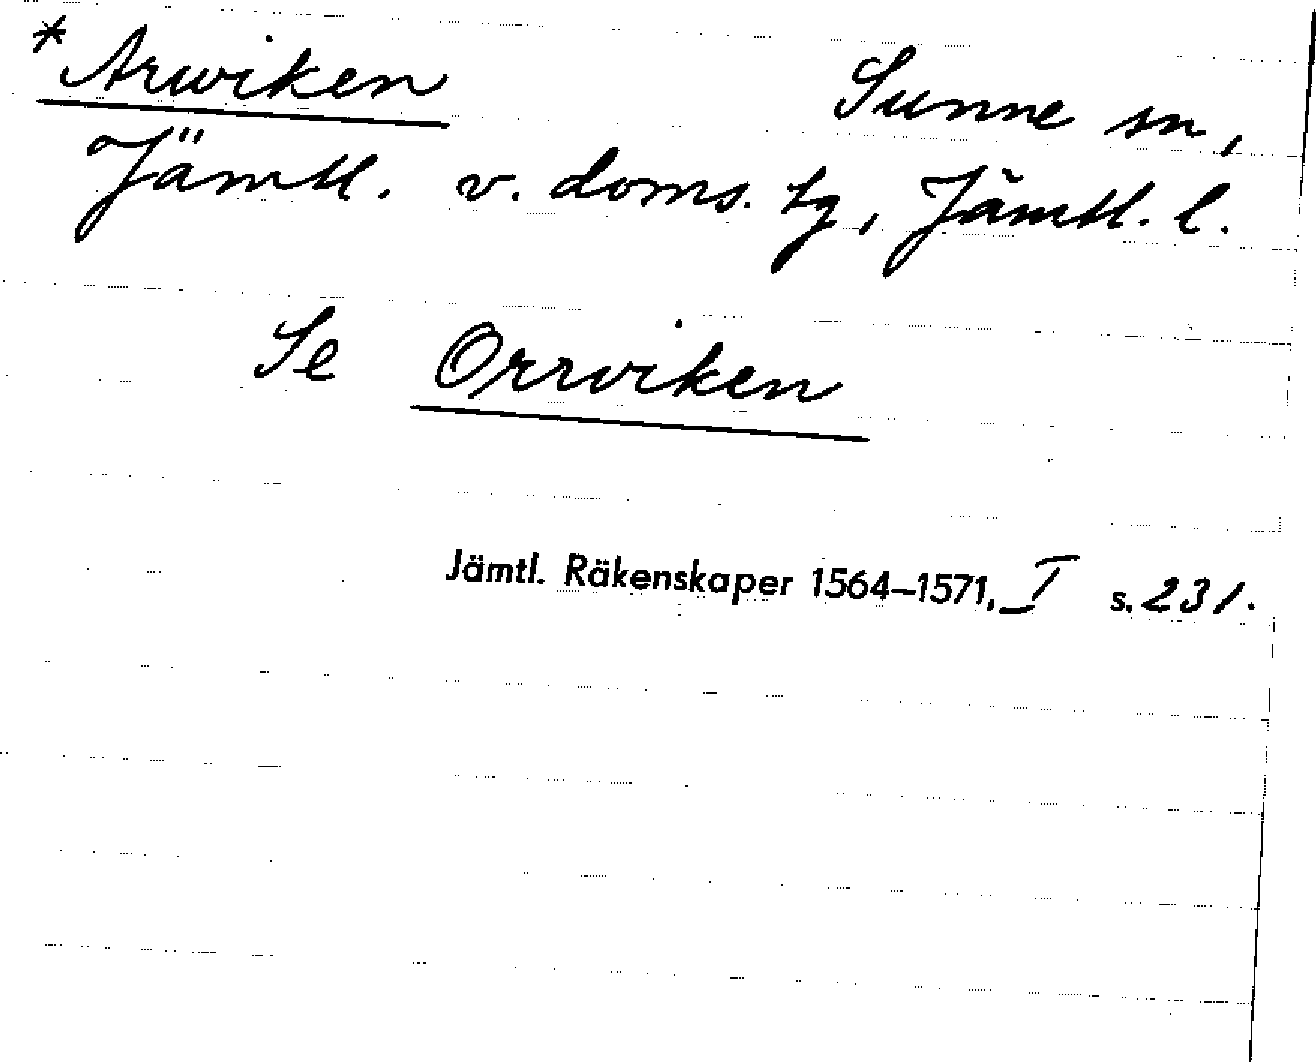 * Arwiken Sunne sn,
Jämtl. v. doms. tg, Jämtl. l.
Se Orrviken
Jämtl. Räkenskaper 1564–1571, I s. 231.